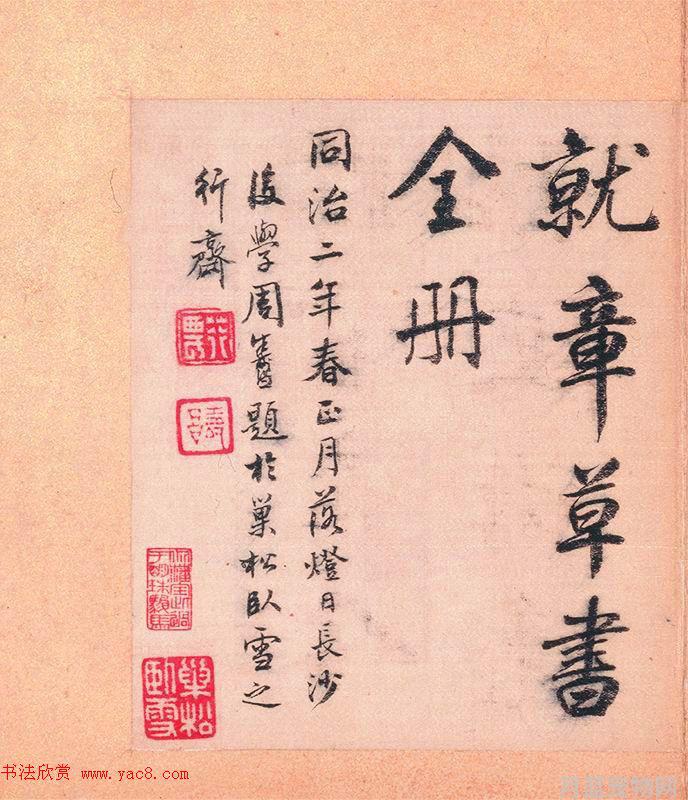 就章草書
全冊
同治二年春正月落燈日長沙
後學周題於巢松臥雪之
行齋
巢松
臥雪
书法欣赏 www.yac8.com